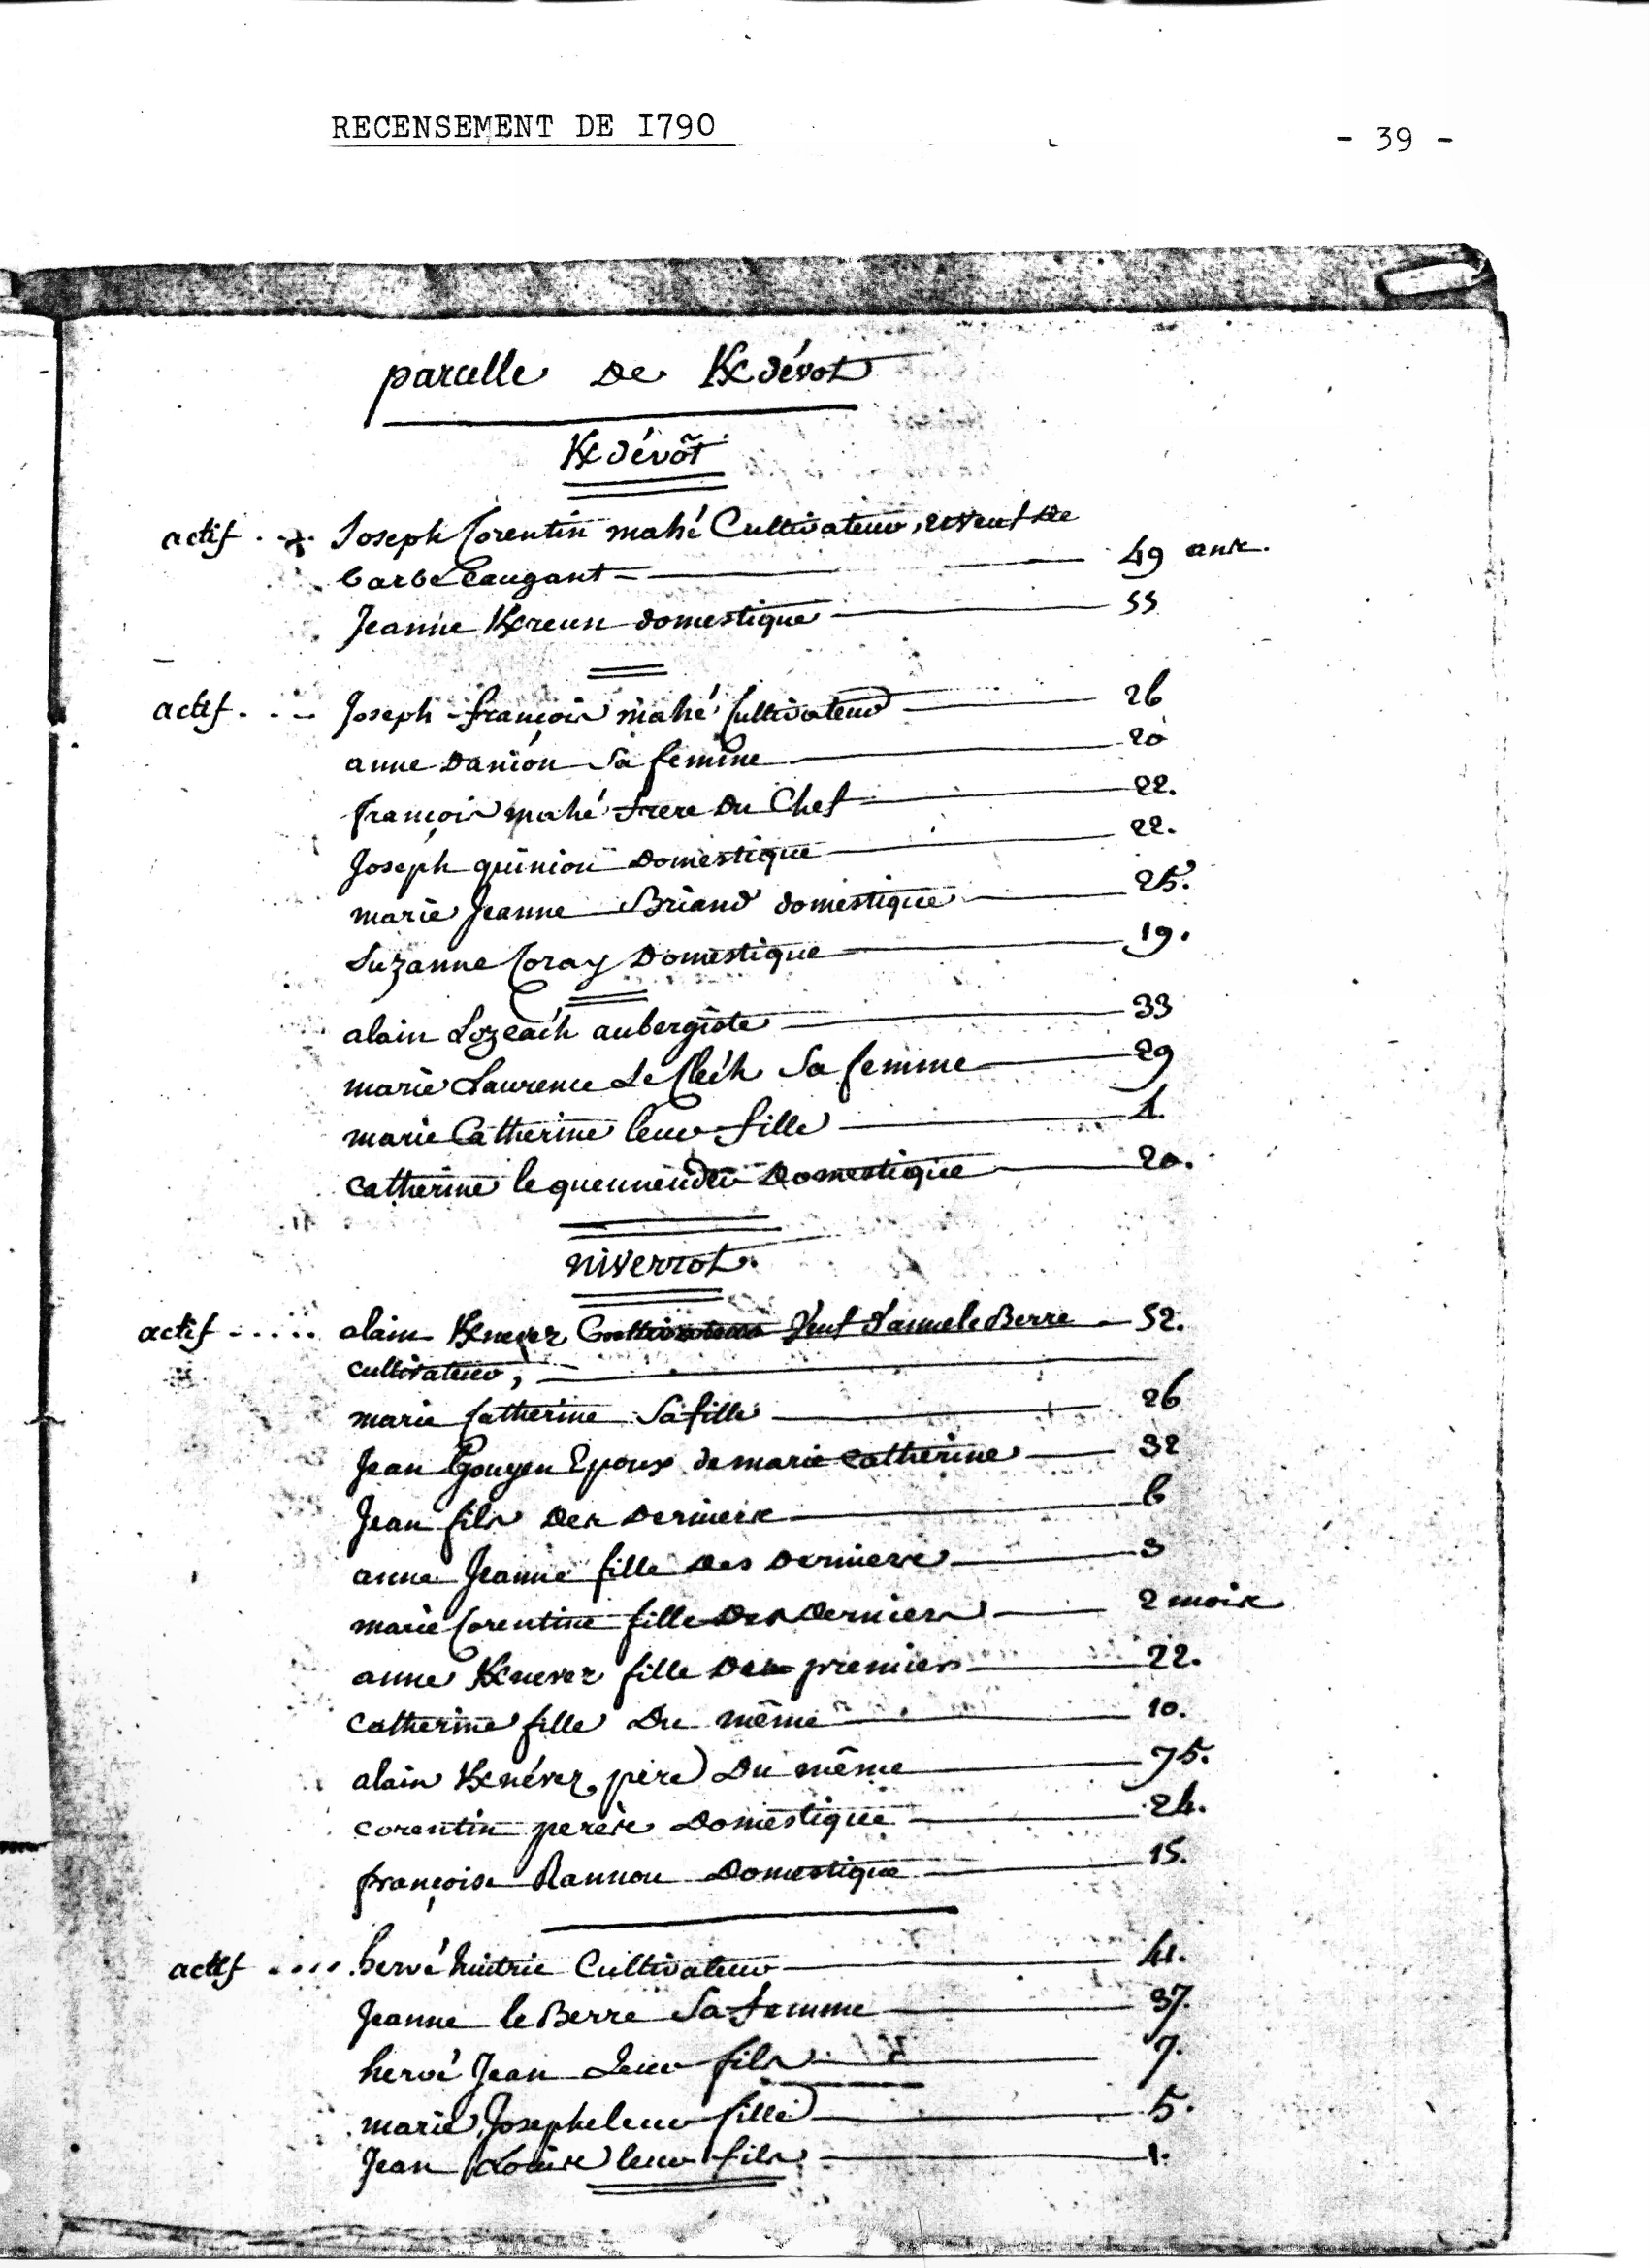 RECENSEMENT DE I790
- 39 -
parcelle de K/dévot
K/dévot
actif Joseph Corentin mahé Cultivateur, veuf de
barbe Caugant 49 ans.
Jeanne K/reun domestique 55
actif Joseph françois mahé Cultivateur 26
anne Daniou Sa femme 20
françois mahé frere du Chef 22.
Joseph quiniou Domestique 22.
marie Jeanne Briand domestique 25.
Suzanne Coray Domestique 19.
alain Lozeäch aubergiste 33
marie Laurence Le Cléch Sa femme 29
marie Catherine leur fille 1.
catherine le queuneudeu Domestique 20.
niverrot.
actif alain K/nevez Cultivateur Veuf d'anne le Berre 52.
cultivateur,
marie Catherine Sa fille 26
Jean Gougen Epoux de marie catherine 32
Jean fils des derniers 6
anne Jeanne fille des derniers 3
marie Corentine fille des derniers 2 mois
anne K/nevez fille des premiers 22.
catherine fille du même 10.
alain K/névez, père du même 75.
corentin perès Domestique 24.
françoise Rannou Domestique 15.
actif hervé huitric Cultivateur 41.
Jeanne le Berre Sa femme 37.
hervé Jean Leur fils 7.
marie Josephe leur fille 5.
Jean Louis leur fils 1.